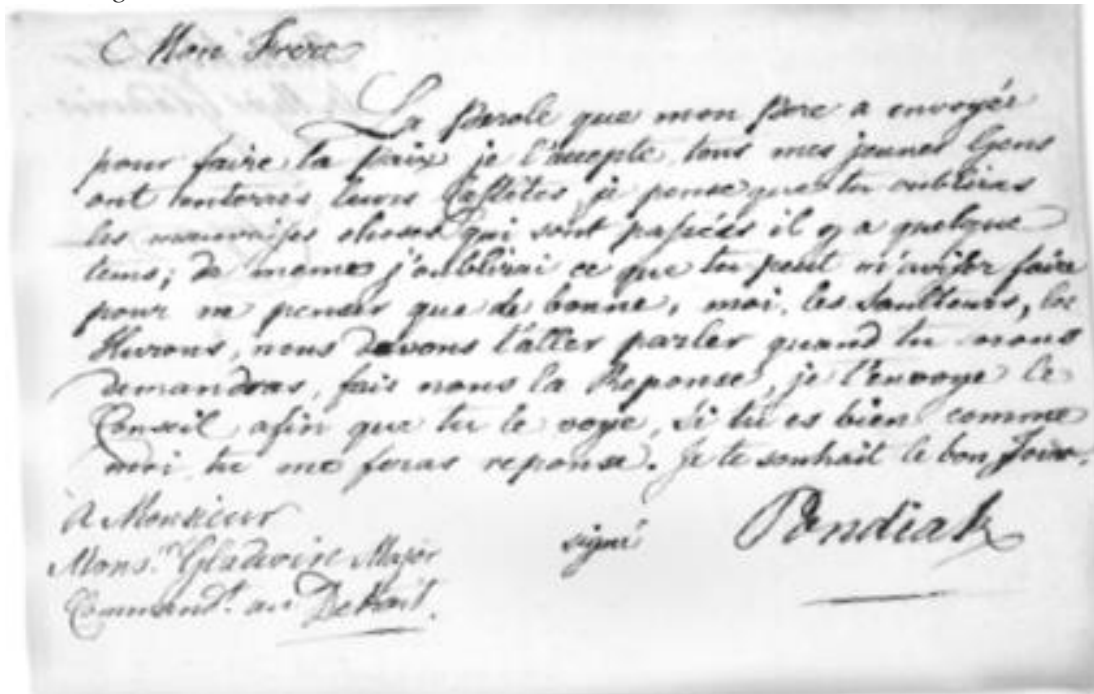 Mon Frere
La Parole que mon Pere a envoyée
pour faire la Paix, je l'accepte, tous mes jeunes Gens
ont enterrés leurs Cassetetes, je pense que tu oublieras
les mauvaises choses qui sont passées il y a quelque
tems; de meme j'oublirai ce que tu peut m'avoir faire
pour ne penser que de bonne, moi, les Saulteurs, les
Hurons, nous devons t'aller parler quand tu nous
demandras, fais nous la Reponse, je t'envoye le
Conseil afin que tu le voye, Si tu es bien comme
moi tu me feras reponse. Je te souhait le bon Jour.
signé Pondiak
à Monsieur
Monsr. Gladwin Major
Commandt. au Detroit.